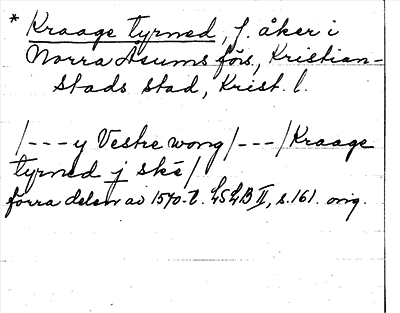 * Kraage tyrned, f. åker i
Norra Åsums förs., Kristian-
stads stad, Krist. l.
/---y Vestre wong/---/Kraage
tyrned j ske/
förra delen av 1570-t. LSLB II, s. 161. orig.